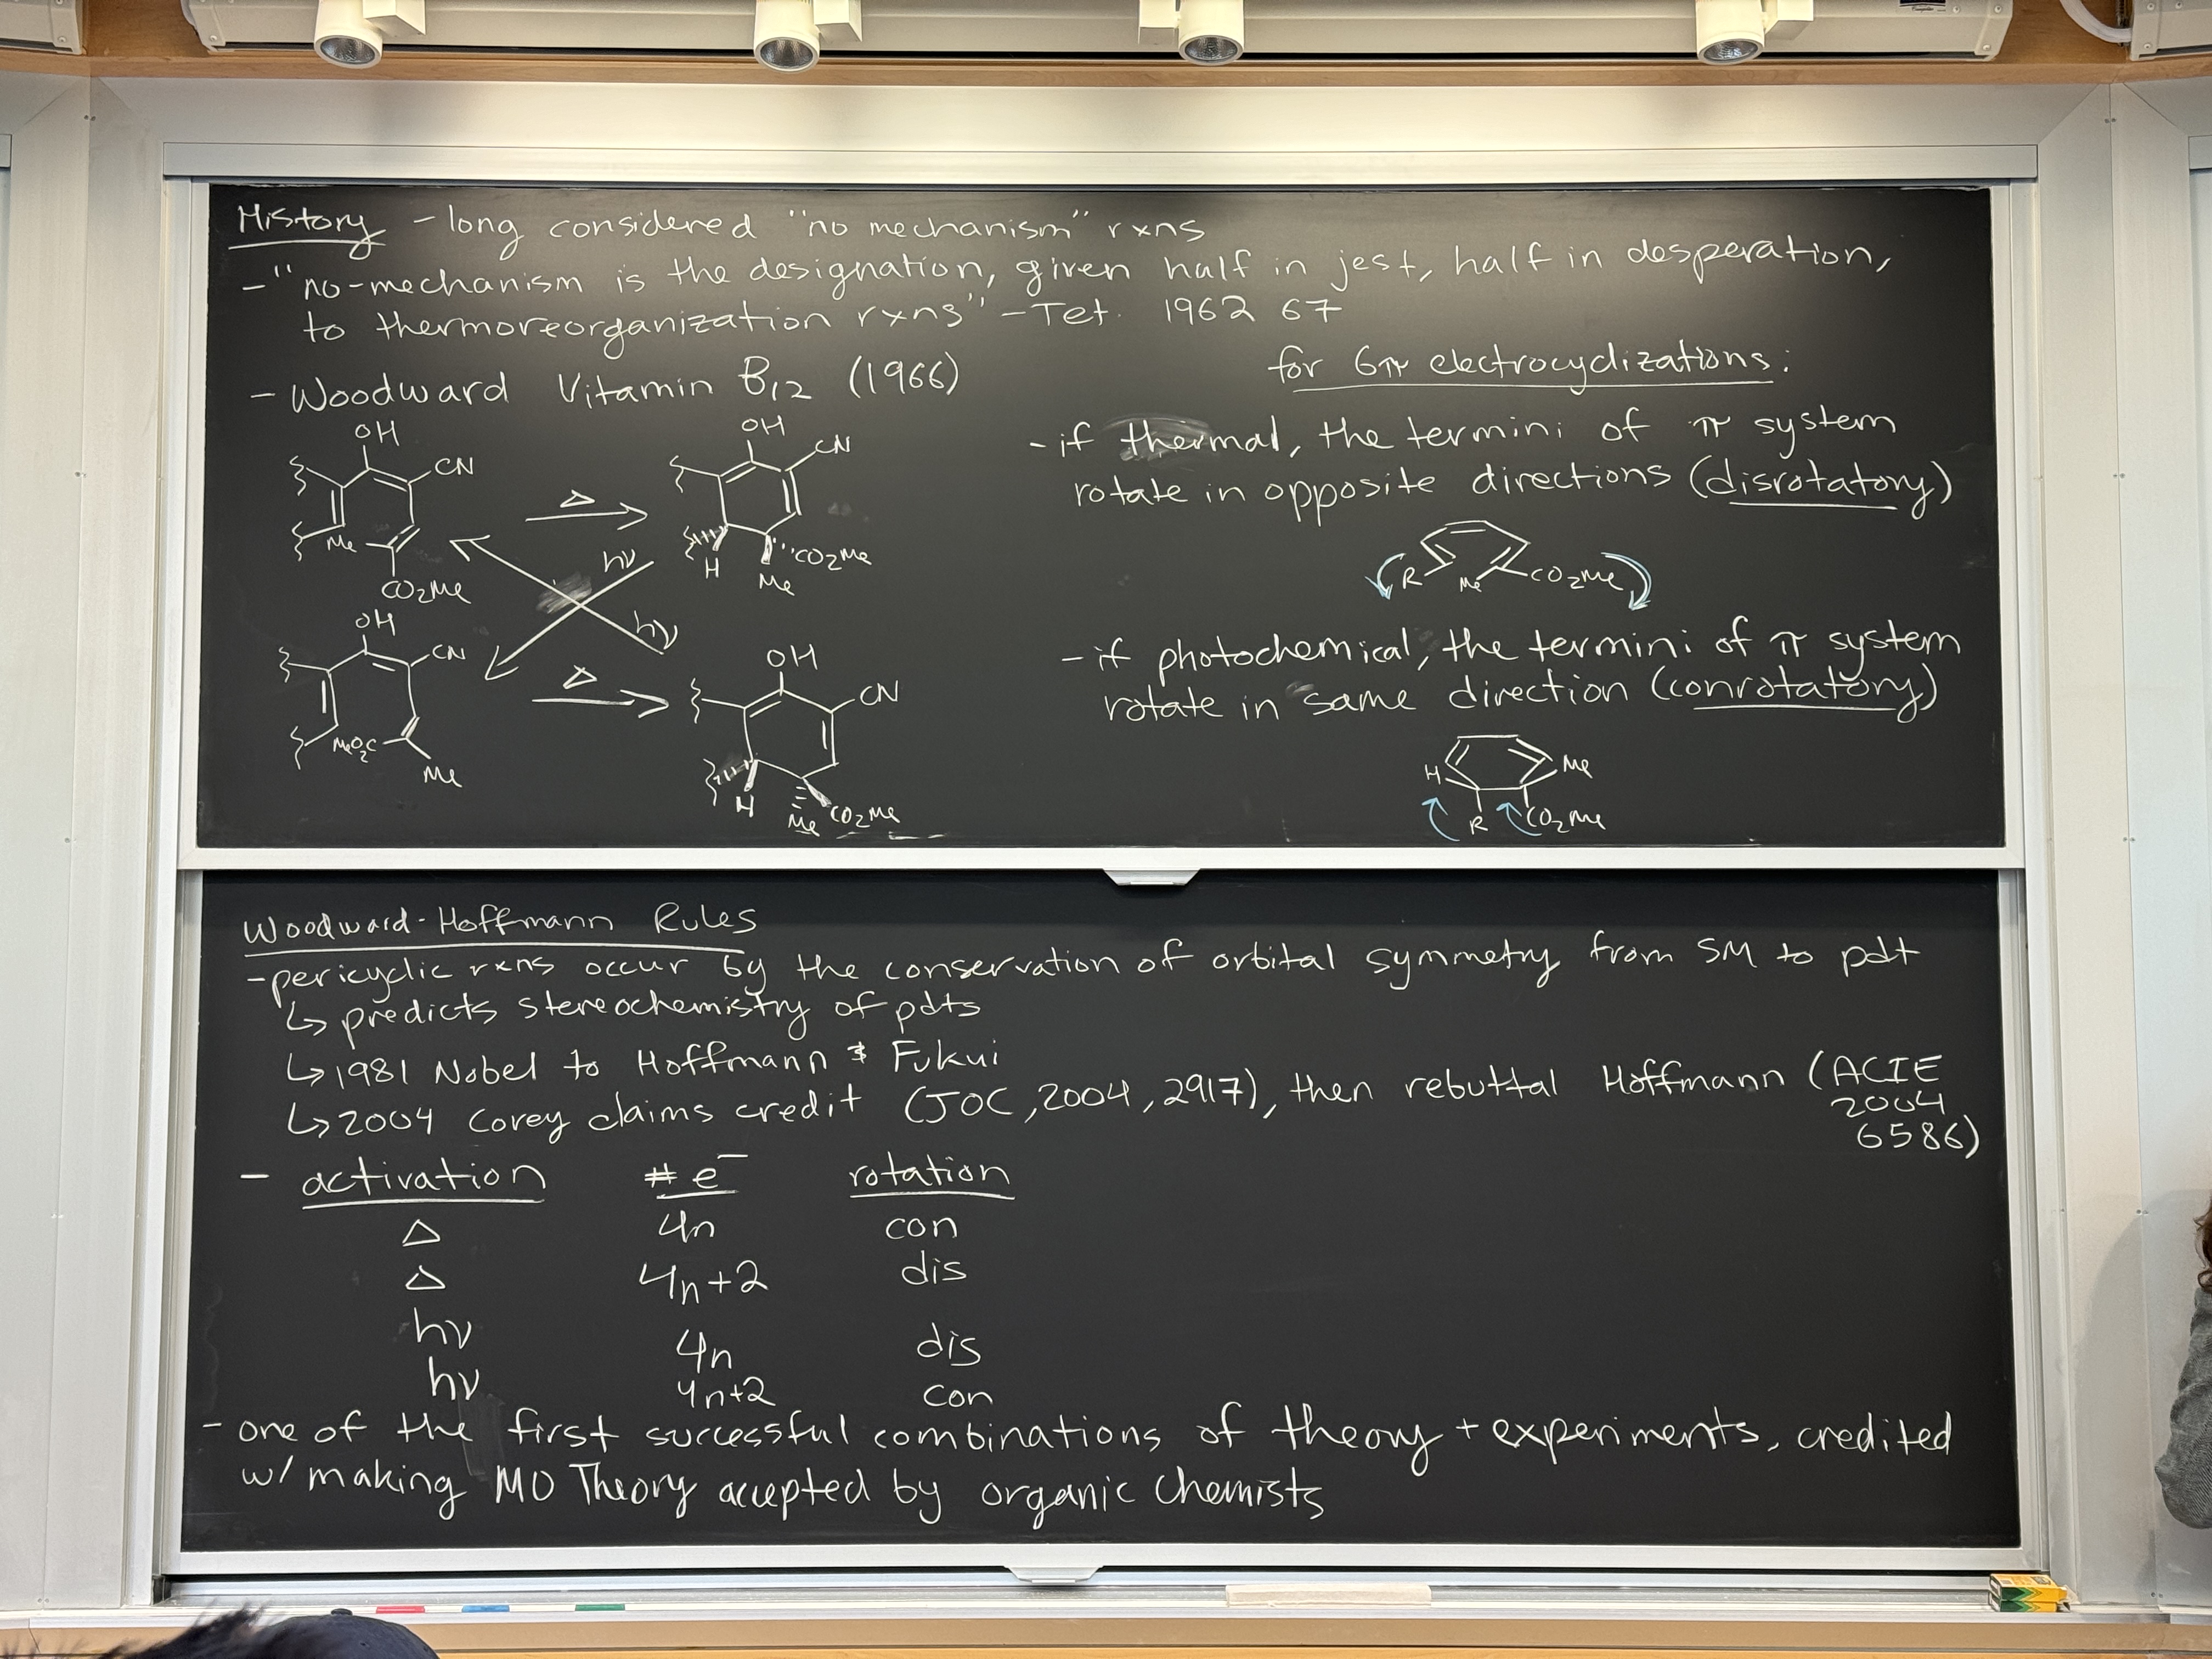 History - long considered "no mechanism" rxns
- "no-mechanism is the designation, given half in jest, half in desperation,
to thermoreorganization rxns" - Tet. 1962 67
- Woodward Vitamin B12 (1966)
OH
CN
Me
CO2Me
Δ
OH
CN
H
Me
CO2Me
hν
hν
OH
CN
MeO2C
Me
Δ
OH
CN
H
Me
CO2Me
for 6π electrocyclizations:
- if thermal, the termini of π system
rotate in opposite directions (disrotatory)
R
Me
CO2Me
- if photochemical, the termini of π system
rotate in same direction (conrotatory)
H
Me
R
CO2Me
Woodward-Hoffmann Rules
- pericyclic rxns occur by the conservation of orbital symmetry from SM to pdt
↳ predicts stereochemistry of pdts
↳ 1981 Nobel to Hoffmann & Fukui
↳ 2004 Corey claims credit (JOC, 2004, 2917), then rebuttal Hoffmann (ACIE
2004
6586)
- activation # e⁻ rotation
Δ 4n con
Δ 4n+2 dis
hν 4n dis
hν 4n+2 con
- one of the first successful combinations of theory + experiments, credited
w/ making MO Theory accepted by organic chemists